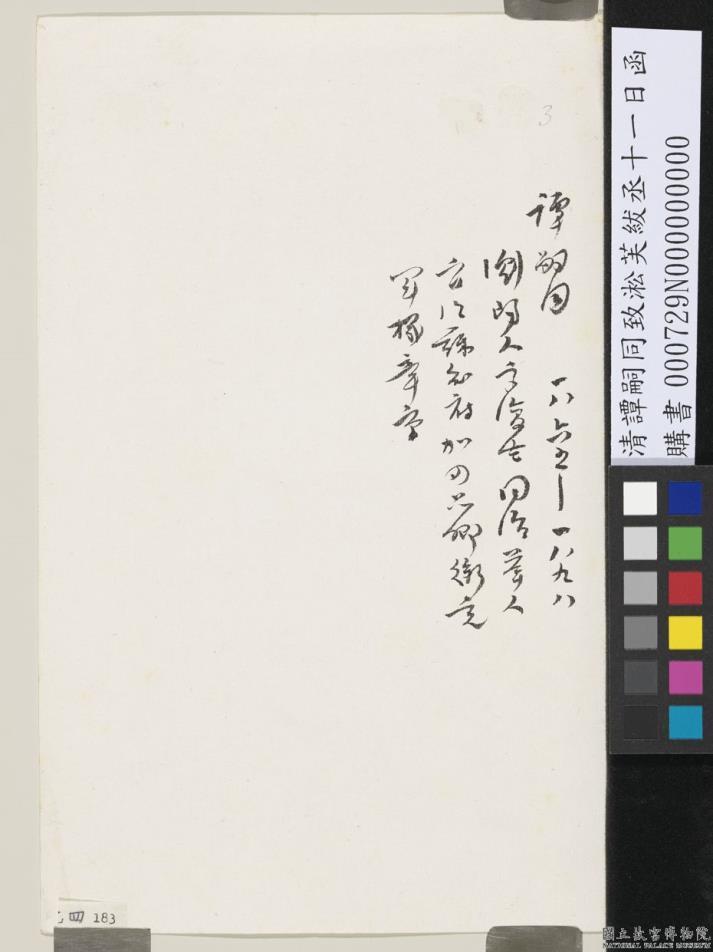 3
譚嗣同 一八六五—一八九八
瀏陽人字復生同治舉人
官江蘇知府加四品卿銜充
軍機章京
清譚嗣同致淞芙紱丞十一日函
購書 000729N000000000
四 183
國立故宮博物院
NATIONAL PALACE MUSEUM